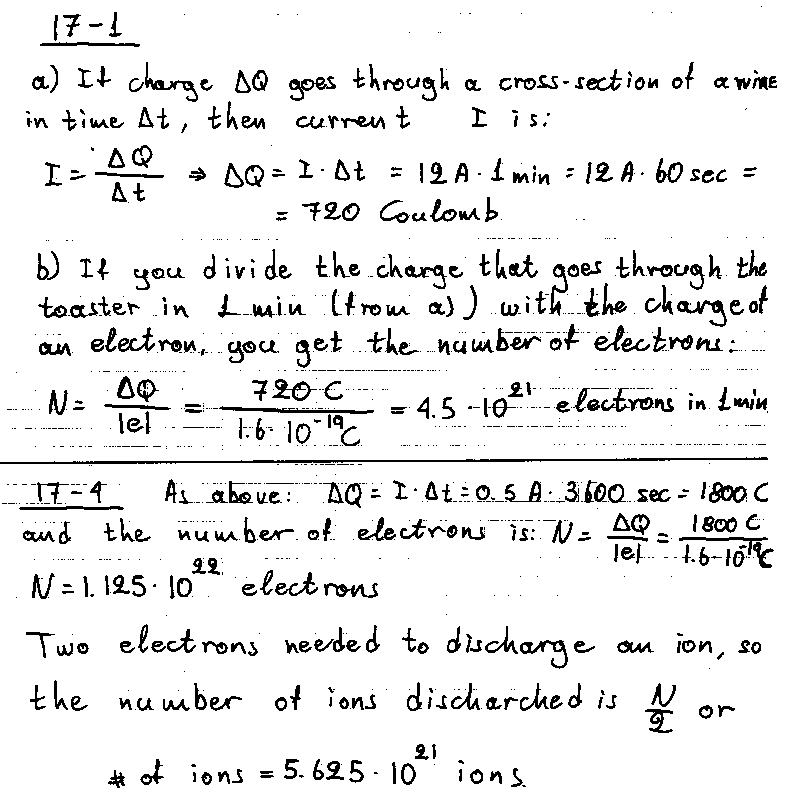 17-1
a) If charge ΔQ goes through a cross-section of a wire
in time Δt, then current I is:
I = ΔQ/Δt ⇒ ΔQ = I·Δt = 12 A·1 min = 12 A·60 sec =
= 720 Coulomb
b) If you divide the charge that goes through the
toaster in 1 min (from a)) with the charge of
an electron, you get the number of electrons:
N = ΔQ/|e| = 720 C/1.6·10⁻¹⁹C = 4.5·10²¹ electrons in 1 min
17-4 As above: ΔQ = I·Δt = 0.5 A·3600 sec = 1800 C
and the number of electrons is: N = ΔQ/|e| = 1800 C/1.6·10⁻¹⁹C
N = 1.125·10²² electrons
Two electrons needed to discharge an ion, so
the number of ions discharched is N/2 or
# of ions = 5.625·10²¹ ions